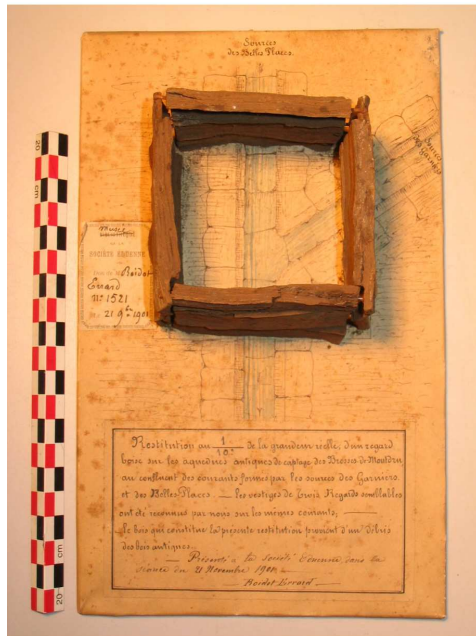 Sources
des Belles Places.
Sources
des Garniers
20
cm
Musée
DE LA
SOCIÉTÉ ÉDUENNE
Don de M Roidot
Errard
N° 1521
21 9bre 1901
Restitution au 1/10e de la grandeur réelle, d'un regard
boisé sur les aqueducs antiques de captage des Brosses-de-Montdru
au confluent des courants formés par les sources des Garniers
et des Belles-Places — les vestiges de trois Regards semblables
ont été reconnus par nous sur les mêmes courants; —
Le bois qui constitue la présente restitution provient d'un débris
des bois antiques —
— Présenté à la Société Eduenne dans la
séance du 21 Novembre 1901 —
Roidot Errard —
cm
20